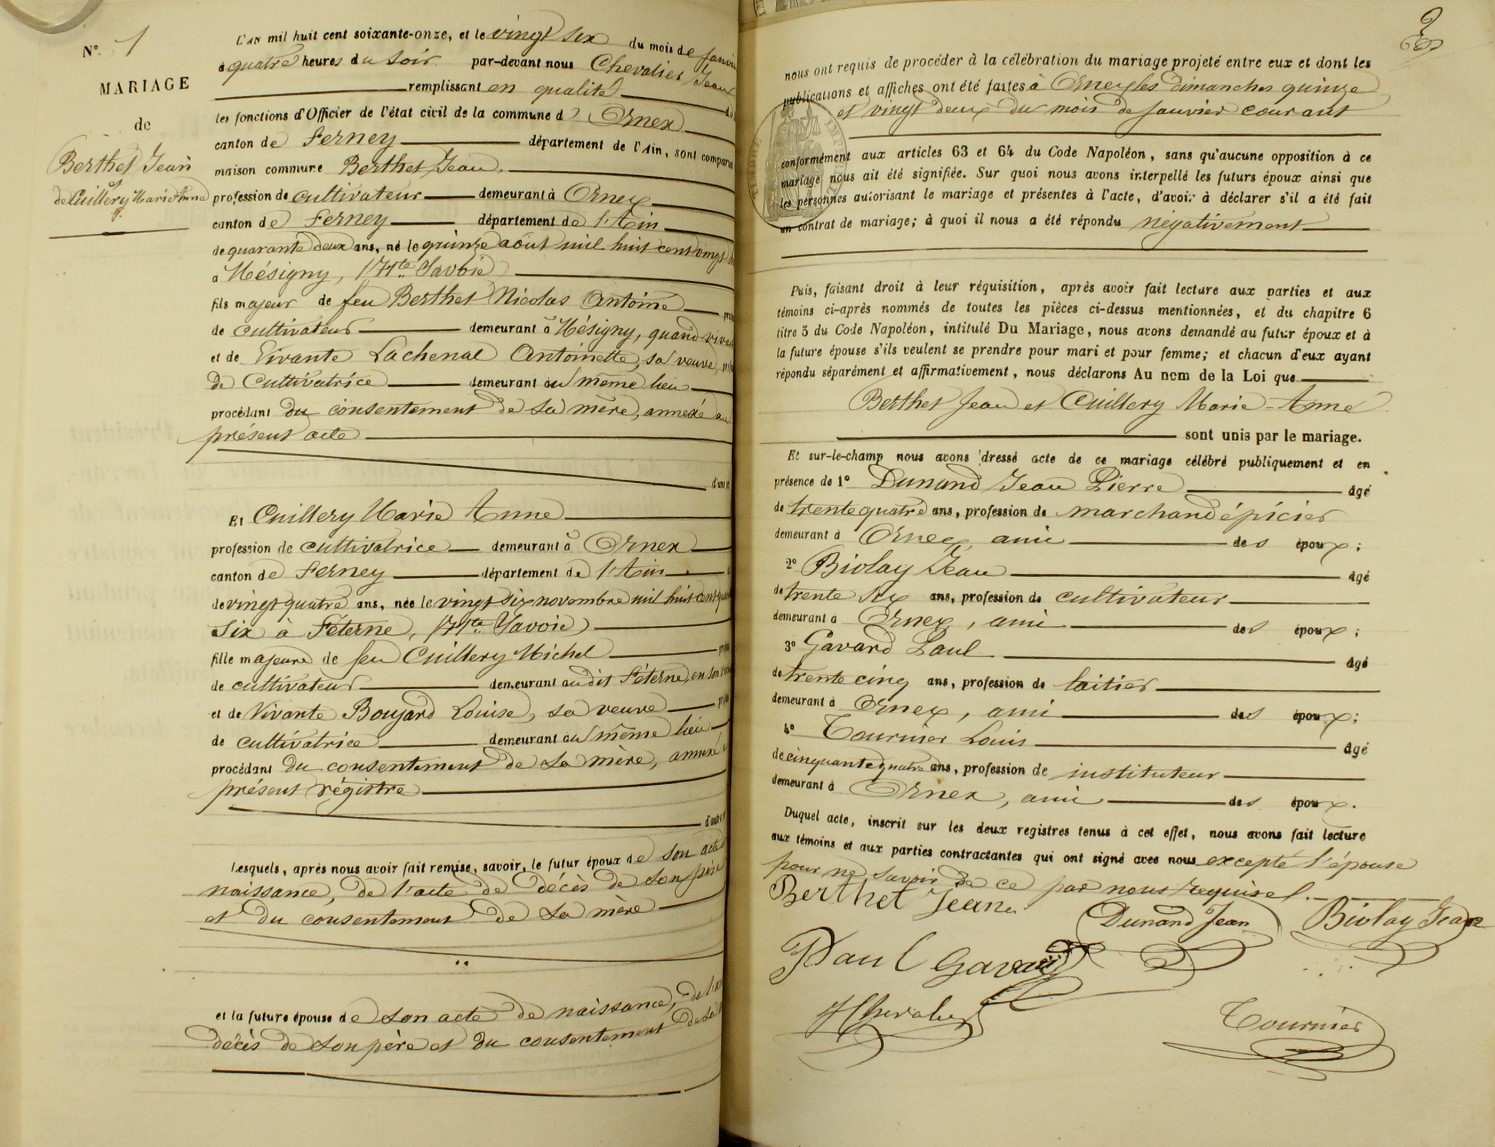 N° 1
MARIAGE
de
Berthet Jean
et
de Cuillery Marie Anne
L'AN mil huit cent soixante-onze, et le vingt six du mois de Janvier
à quatre heures du soir par-devant nous Chevalier Jean
remplissant en qualité
les fonctions d'Officier de l'état civil de la commune d' Ornex
canton de Ferney département de l'Ain, sont comparus
maison commune Berthet Jean
profession de cultivateur demeurant à Ornex
canton de Ferney département de l'Ain
de quarante deux ans, né le quinze août mil huit cent vingt
à Mésigny, (Hte Savoie)
fils majeur de feu Berthet Nicolas Antoine
de cultivateur demeurant à Mésigny, quand vivait
et de Vivante Lachenal Antoinette, sa veuve,
de Cultivatrice demeurant au même lieu
procédant du consentement de sa mère, annexé au
présent acte
d'une
Et Cuillery Marie Anne
profession de cultivatrice demeurant à Ornex
canton de Ferney département de l'Ain
de vingt quatre ans, née le vingt six novembre mil huit cent quarante
six à Féterne, (Hte Savoie)
fille majeure de feu Cuillery Michel
de cultivateur demeurant au dit Féterne, en son
et de Vivante Boujard Louise, sa veuve
de cultivatrice demeurant au même lieu
procédant du consentement de sa mère, annexé
présent régistre
d'autre
Lesquels, après nous avoir fait remise, savoir, le futur époux de son acte
naissance, de l'acte de décès de son père
et du consentement de sa mère
et la future épouse de son acte de naissance, de l'acte
décès de son père et du consentement de sa
2
nous ont requis de procéder à la célébration du mariage projeté entre eux et dont les
publications et affiches ont été faites à Ornex les dimanches quinze
et vingt deux du mois de Janvier courant
conformément aux articles 63 et 64 du Code Napoléon, sans qu'aucune opposition à ce
mariage nous ait été signifiée. Sur quoi nous avons interpellé les futurs époux ainsi que
les personnes autorisant le mariage et présentes à l'acte, d'avoir à déclarer s'il a été fait
un contrat de mariage; à quoi il nous a été répondu négativement
Puis, faisant droit à leur réquisition, après avoir fait lecture aux parties et aux
témoins ci-après nommés de toutes les pièces ci-dessus mentionnées, et du chapitre 6
titre 5 du Code Napoléon, intitulé Du Mariage, nous avons demandé au futur époux et à
la future épouse s'ils veulent se prendre pour mari et pour femme; et chacun d'eux ayant
répondu séparément et affirmativement, nous déclarons Au nom de la Loi que
Berthet Jean et Cuillery Marie-Anne
sont unis par le mariage.
Et sur-le-champ nous avons dressé acte de ce mariage célébré publiquement et en
présence de 1° Dunand Jean Pierre âgé
de trente quatre ans, profession de marchand épicier
demeurant à Ornex, ami des époux;
2° Biolay Jean âgé
de trente six ans, profession de cultivateur
demeurant à Ornex, ami des époux;
3° Gavard Paul âgé
de trente cinq ans, profession de laitier
demeurant à Ornex, ami des époux;
4° Tournier Louis âgé
de cinquante quatre ans, profession de instituteur
demeurant à Ornex, ami des époux.
Duquel acte, inscrit sur les deux registres tenus à cet effet, nous avons fait lecture
aux témoins et aux parties contractantes qui ont signé avec nous excepté l'épouse
pour ne savoir de ce par nous requise.
Berthet Jean Dunand Jean Biolay Jean
Paul Gavard
J Chevalier Tournier